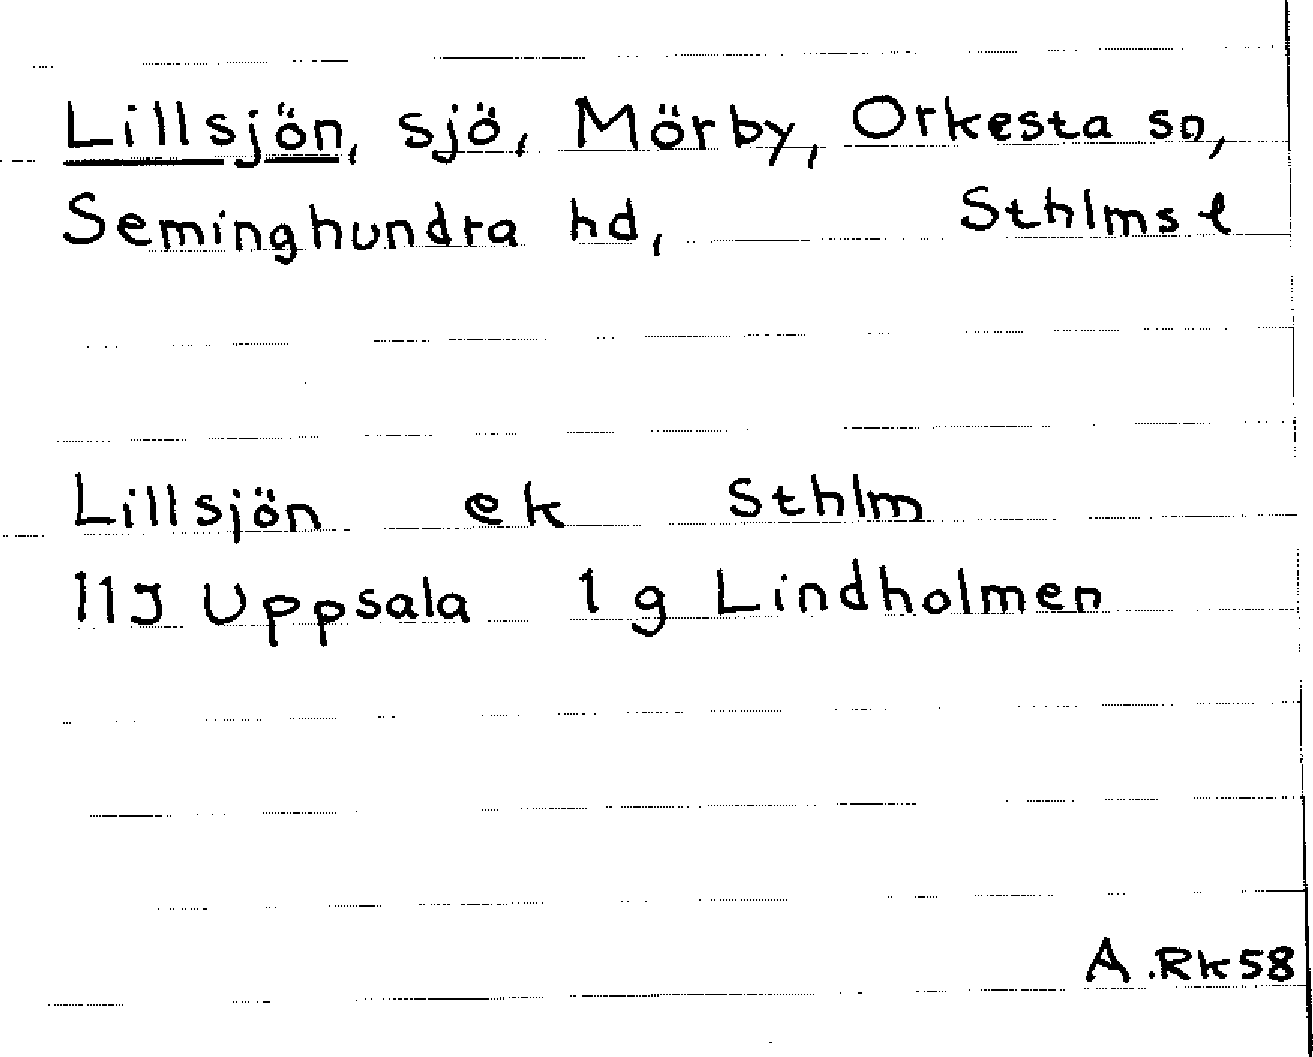 Lillsjön, sjö, Mörby, Orkesta sn,
Seminghundra hd, Sthlms l
Lillsjön ek Sthlm
11J Uppsala 1 g Lindholmen
A.RK58